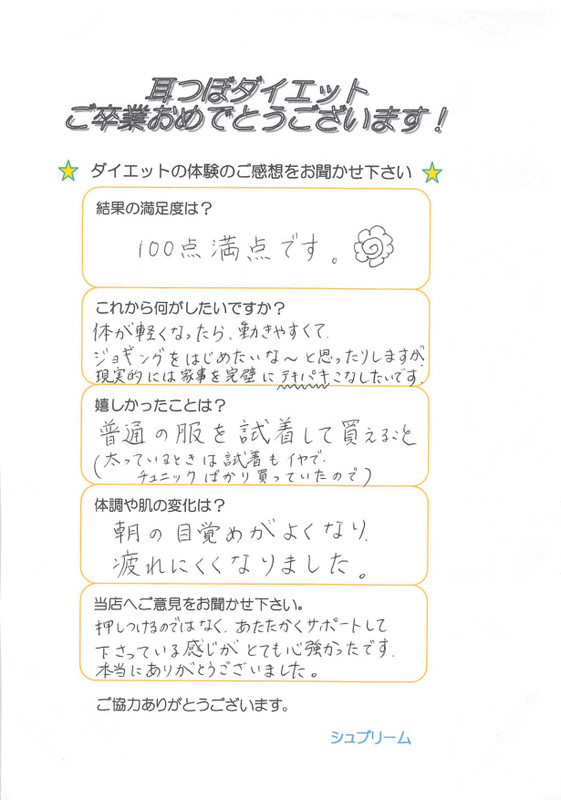 耳つぼダイエット
ご卒業おめでとうございます！
ダイエットの体験のご感想をお聞かせ下さい
結果の満足度は？
100点満点です。
これから何がしたいですか？
体が軽くなったら、動きやすくて、
ジョギングをはじめたいな～と思ったりしますが、
現実的には家事を完璧にテキパキこなしたいです。
嬉しかったことは？
普通の服を試着して買えること
(太っているときは試着もイヤで、
チュニックばかり買っていたので)
体調や肌の変化は？
朝の目覚めがよくなり、
疲れにくくなりました。
当店へご意見をお聞かせ下さい。
押しつけるのではなく、あたたかくサポートして
下さっている感じがとても心強かったです。
本当にありがとうございました。
ご協力ありがとうございます。
シュプリーム